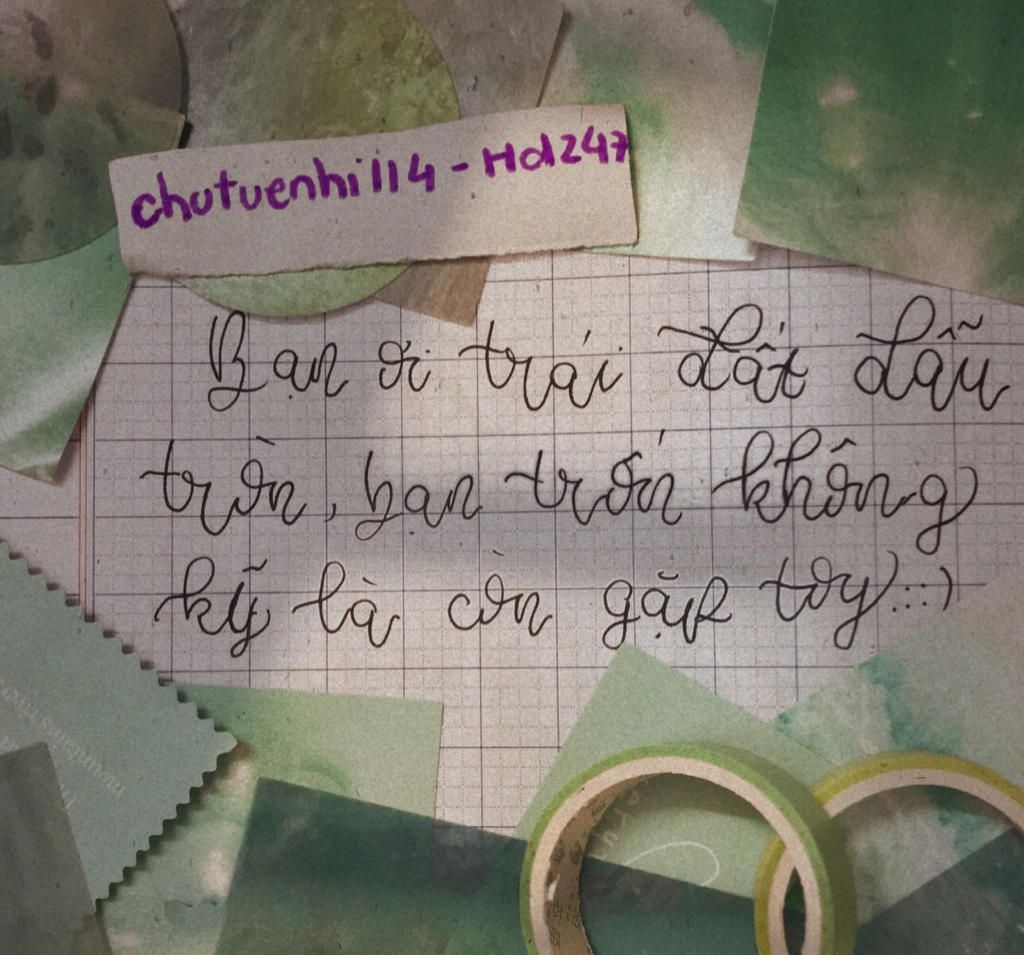 chutuenhi114 - Hd247
Bạn ơi trái đất dẫu
tròn, bạn trốn không
kỹ là còn gặp tớy :::)